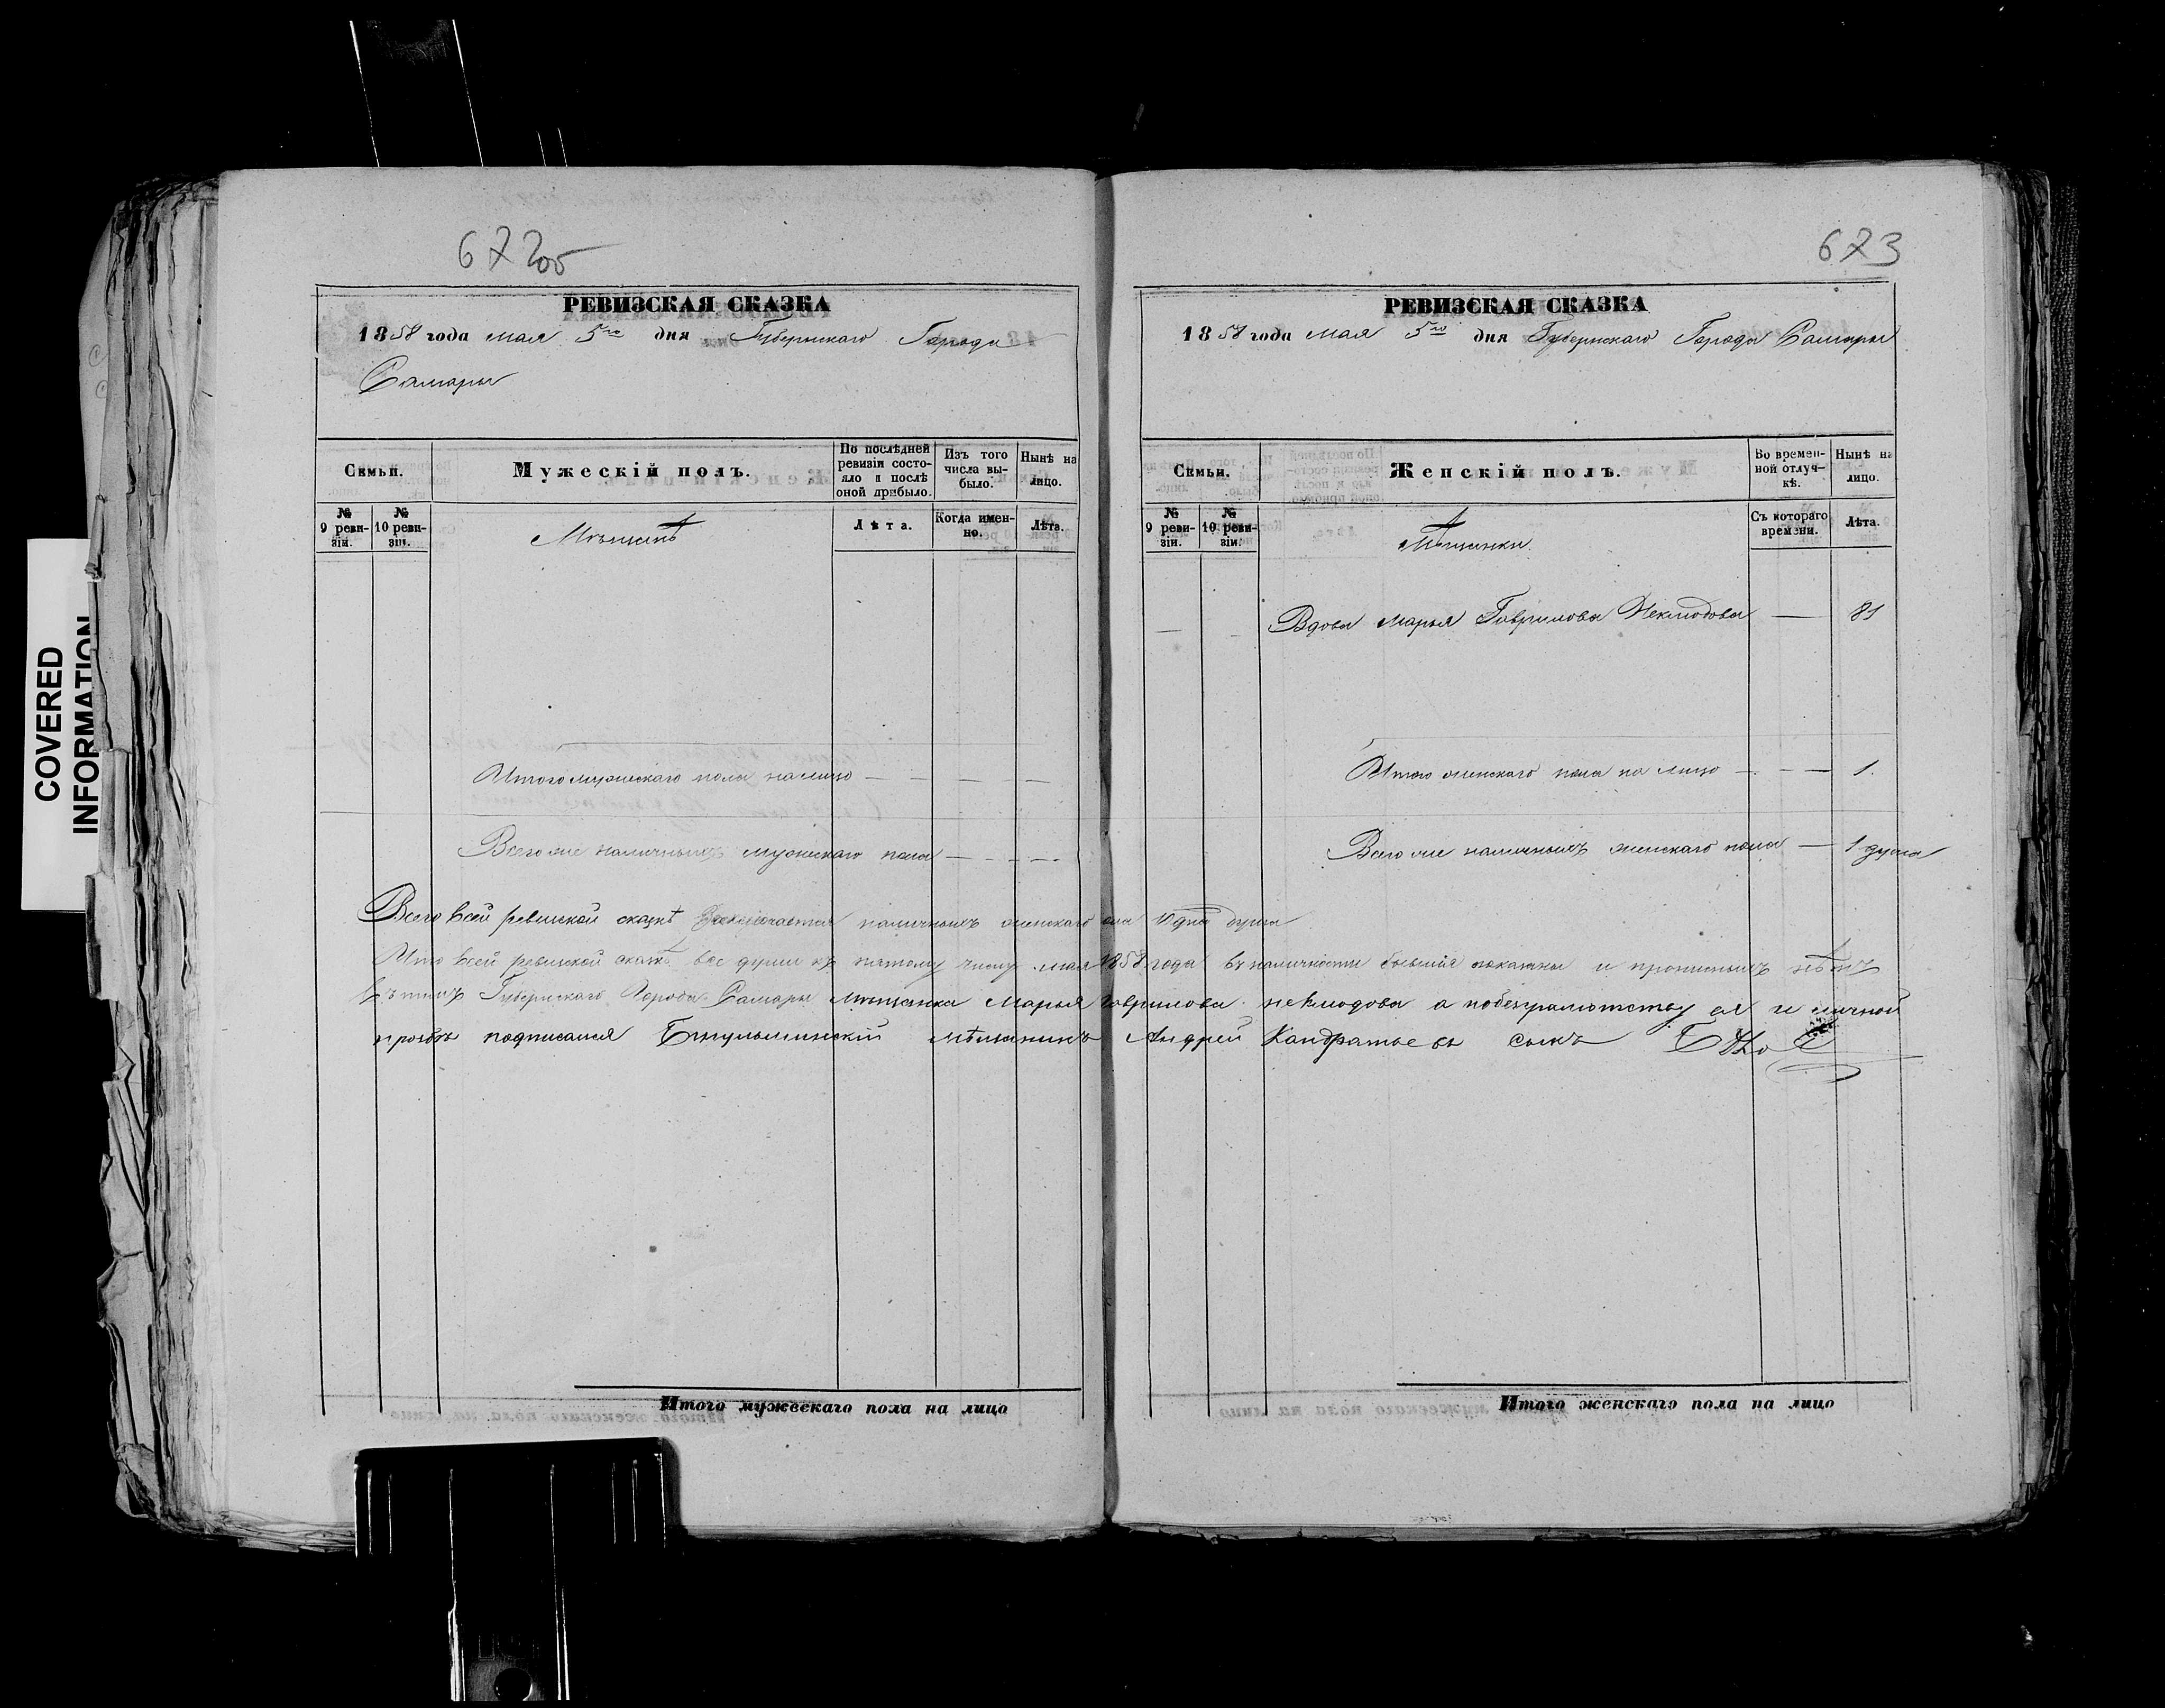 COVERED
INFORMATION
672об
РЕВИЗСКАЯ СКАЗКА
1858 года мая 5го дня Губернскаго Города
Самары
Семьи.
Мужескій полъ.
По послѣдней ревизіи состояло и послѣ оной прибыло.
Изъ того числа выбыло.
Нынѣ на лицо.
№ 9 ревизіи.
№ 10 ревизіи.
Мѣщанѣ
Лѣта.
Когда именно.
Лѣта.
Итого мужескаго пола налицо — — — —
Всего же наличныхъ мужескаго пола — - - —
Итого мужескаго пола на лицо
673
РЕВИЗСКАЯ СКАЗКА
1858 года мая 5го дня Губернскаго Города Самары
Семьи.
Женскій полъ.
Во временной отлучкѣ.
Нынѣ на лицо.
№ 9 ревизіи.
№ 10 ревизіи.
Мѣщанки
Съ котораго времени.
Лѣта.
— - Вдова Марья Гаврилова Неклюдова — 81
Итого женскаго пола на лицо — - — 1.
Всего же наличныхъ женскаго пола — 1 душа
Всего всей ревиской сказкѣ заключается наличныхъ женскаго одна душа
Что всей ревиской сказкѣ все души къ пятому числу мая 1858 года въ наличности бывшія показаны и прописныхъ нѣтъ
Губернскаго Города Самары мѣщанка Марья Гаврилова Неклюдова а побезграмотству ея и личной
прозбѣ подписался Бугульминскій мѣщанинъ Андрей Кандратьевъ сынъ
Итого женскаго пола на лицо